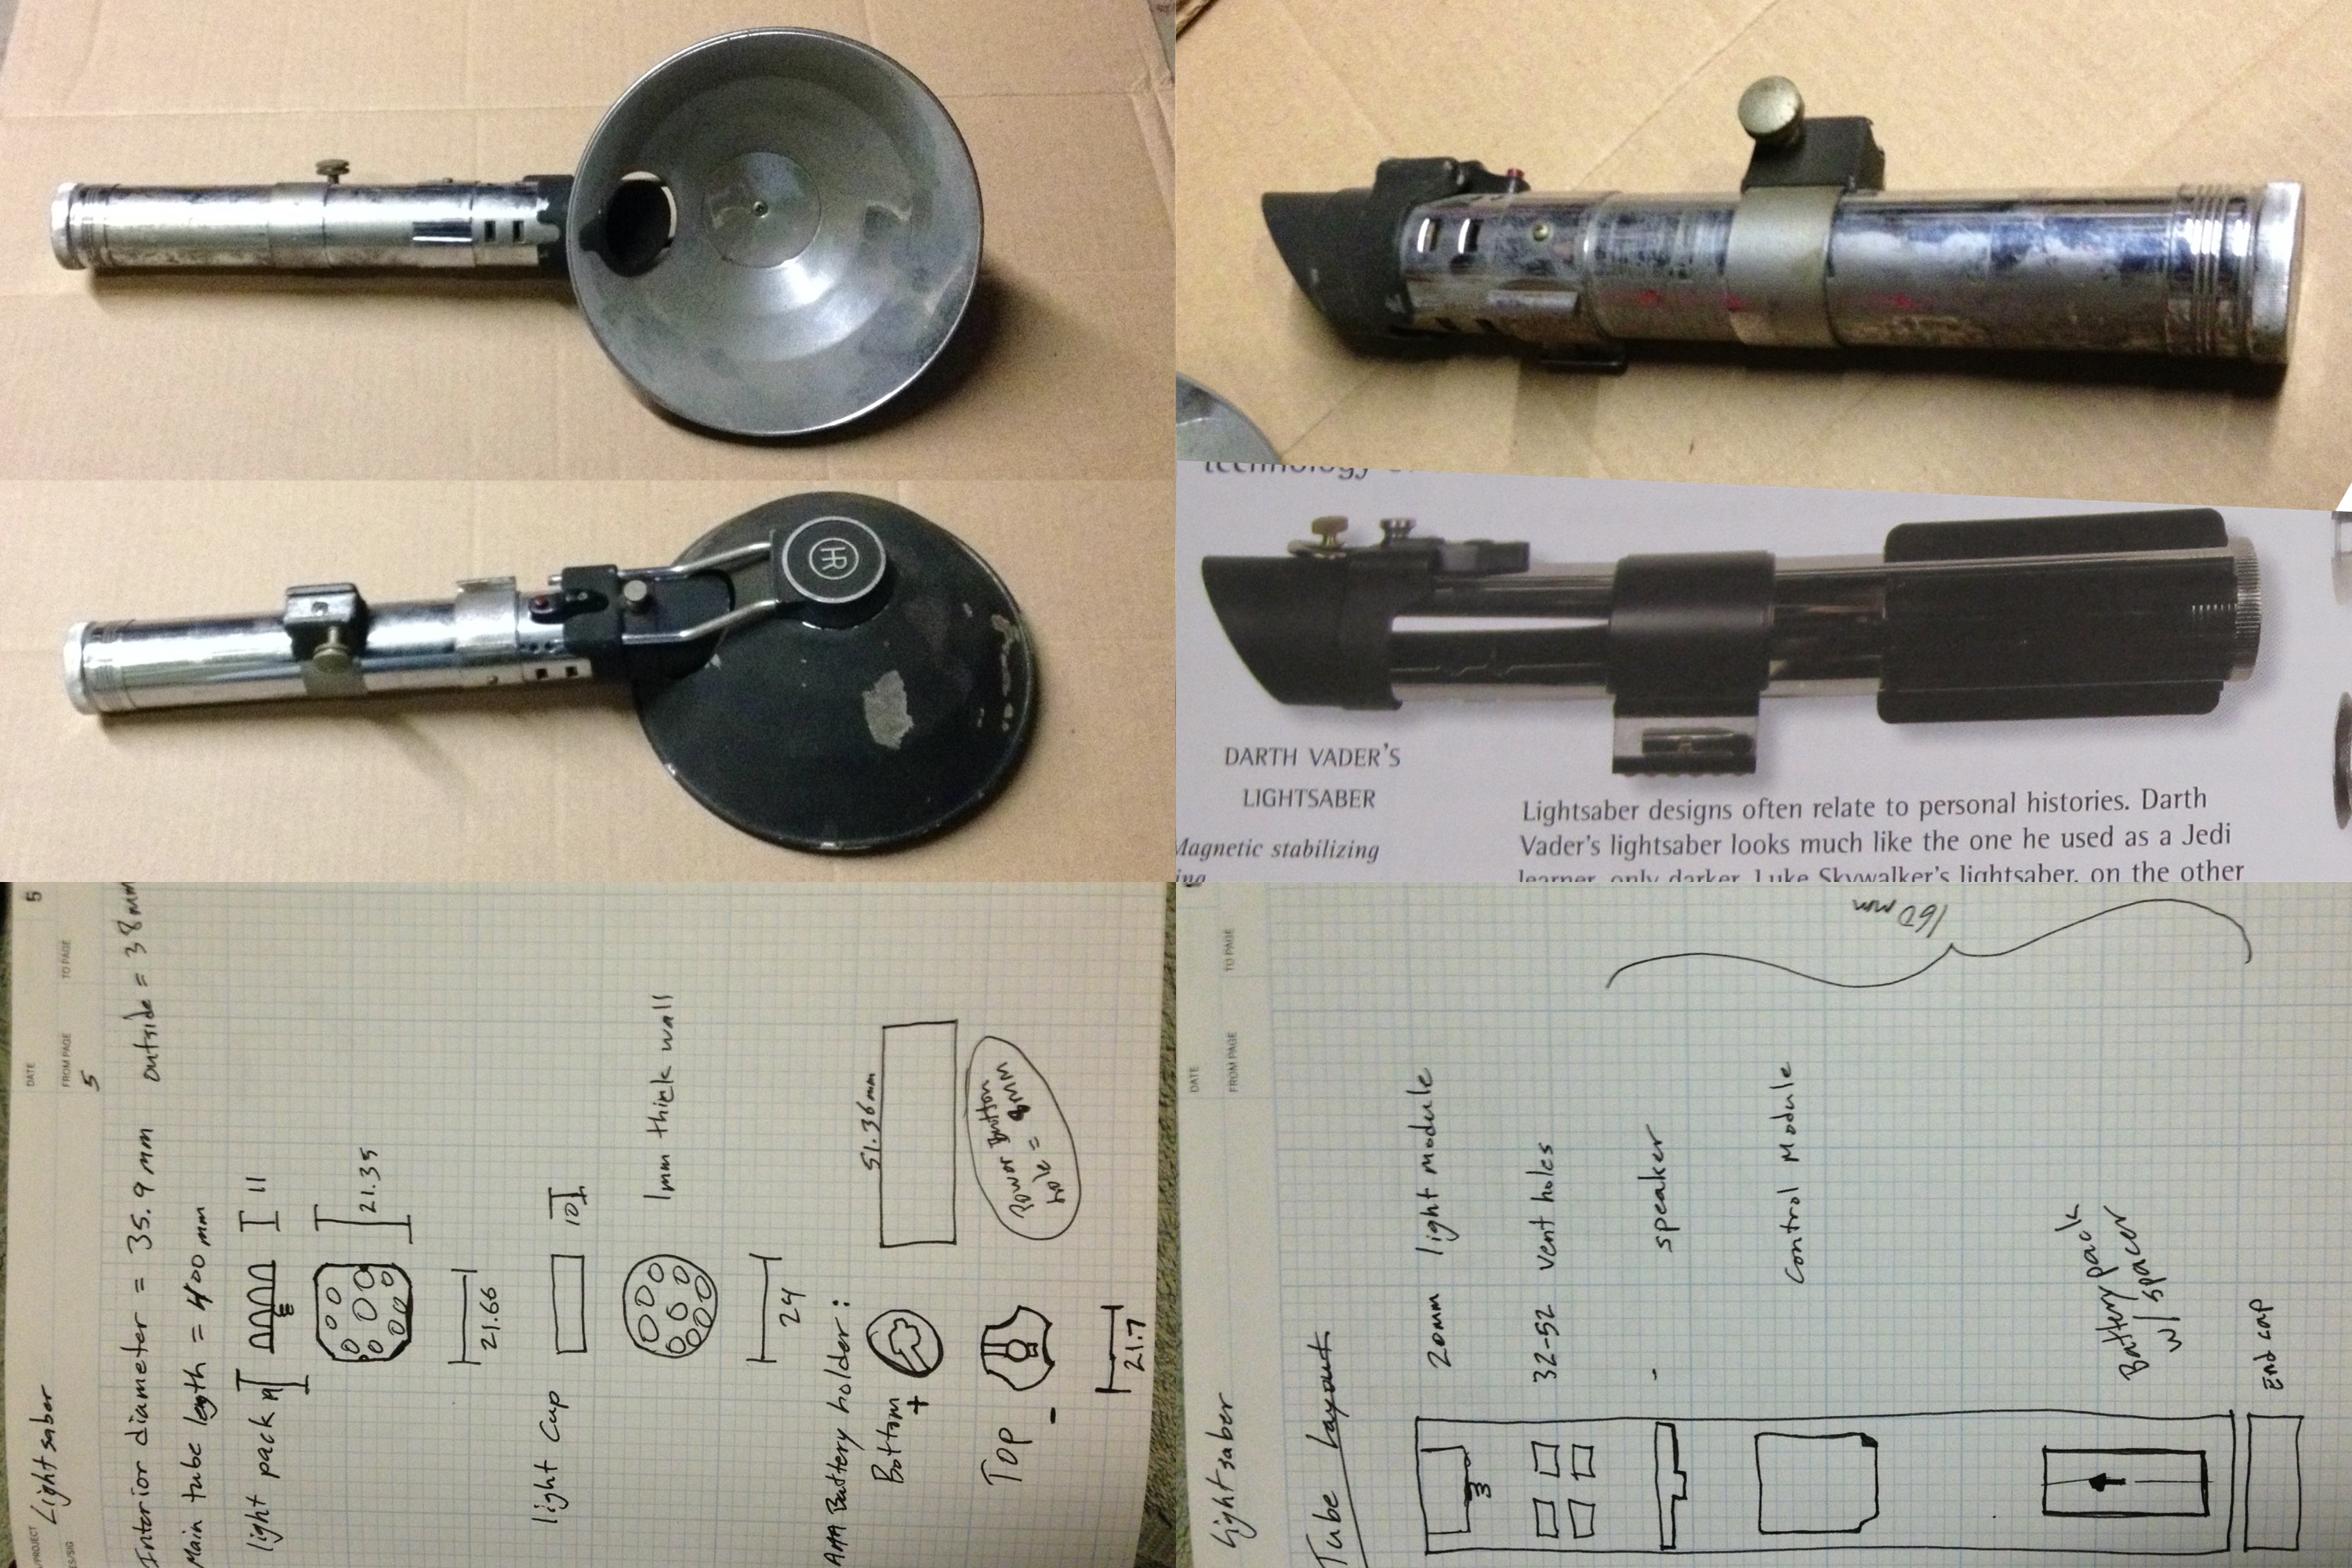 HR
technology
DARTH VADER'S
LIGHTSABER
Magnetic stabilizing
Lightsaber designs often relate to personal histories. Darth
Vader's lightsaber looks much like the one he used as a Jedi
learner, only darker. Luke Skywalker's lightsaber, on the other
/PROJECT Lightsaber
DATE
5
FROM PAGE 5
TO PAGE
Interior diameter = 35.9 mm outside = 38 mm
Main tube length = 400 mm
light pack
11
21.35
21.66
light Cup
10
1mm thick wall
24
AAA Battery holder:
Bottom
+
51.36mm
Top
-
Power Button
hole = 8MM
21.7
Lightsaber
DATE
FROM PAGE
TO PAGE
Tube Layout
20mm light module
32-52 vent holes
- speaker
Control Module
160 mm
Battery pack
w/ spacer
End cap